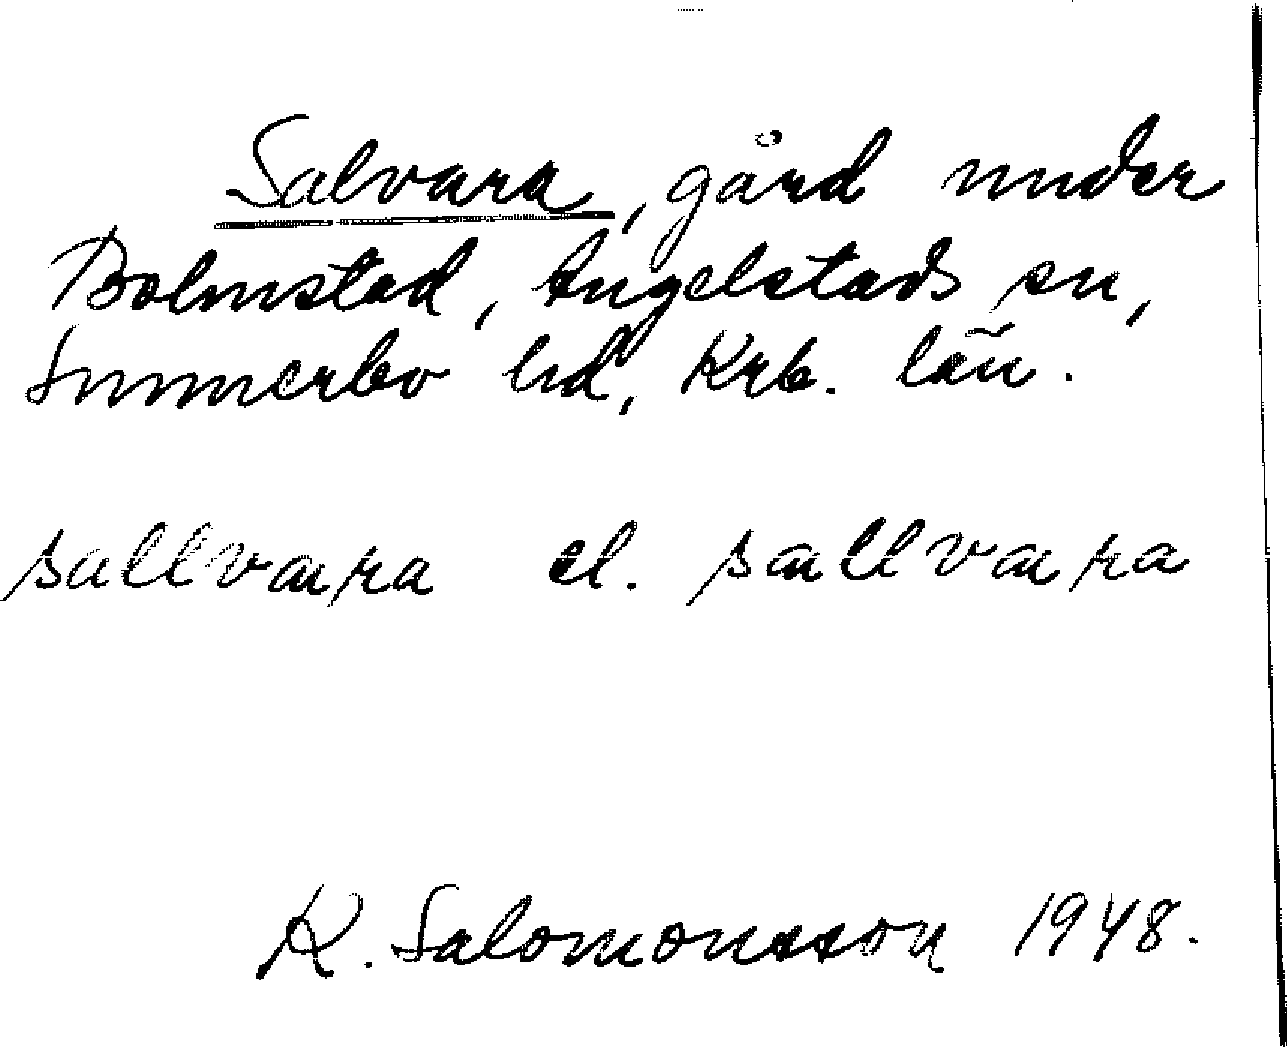 Salvara, gård under
Bolmstad, Angelstads sn,
Sunnerbo hd, Krb. län.
sallvara el. sallvara
K. Salomonsson 1948.